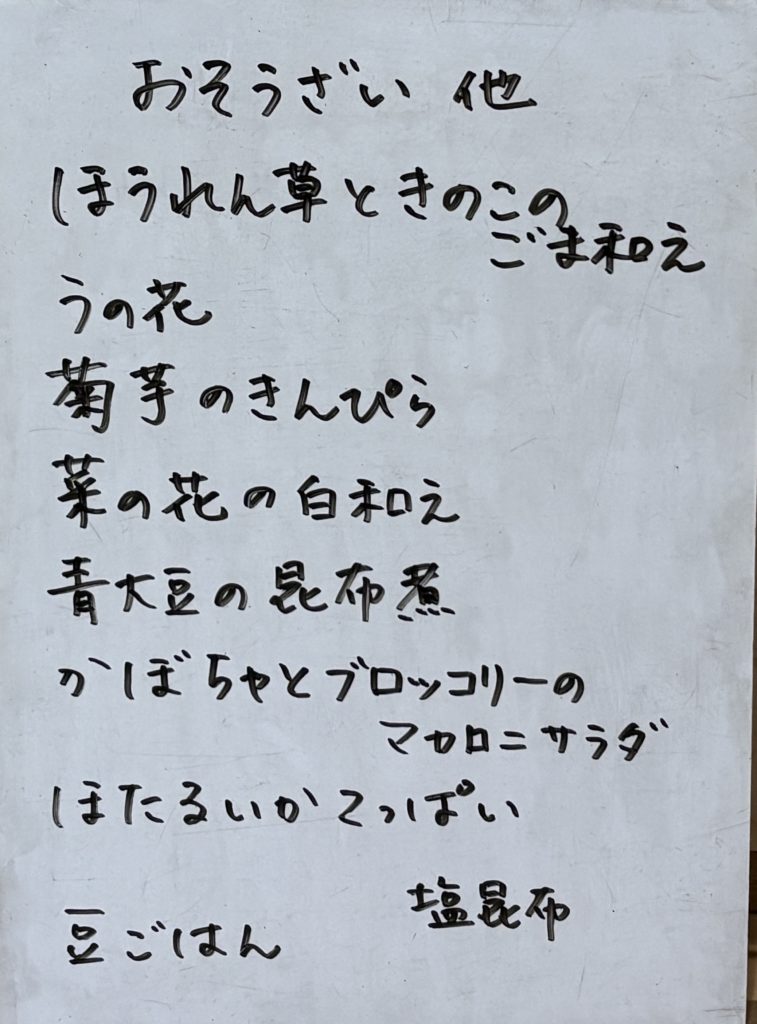 おそうざい 他
ほうれん草ときのこの
ごま和え
うの花
菊芋のきんぴら
菜の花の白和え
青大豆の昆布煮
かぼちゃとブロッコリーの
マカロニサラダ
ほたるいかてっぱい
塩昆布
豆ごはん